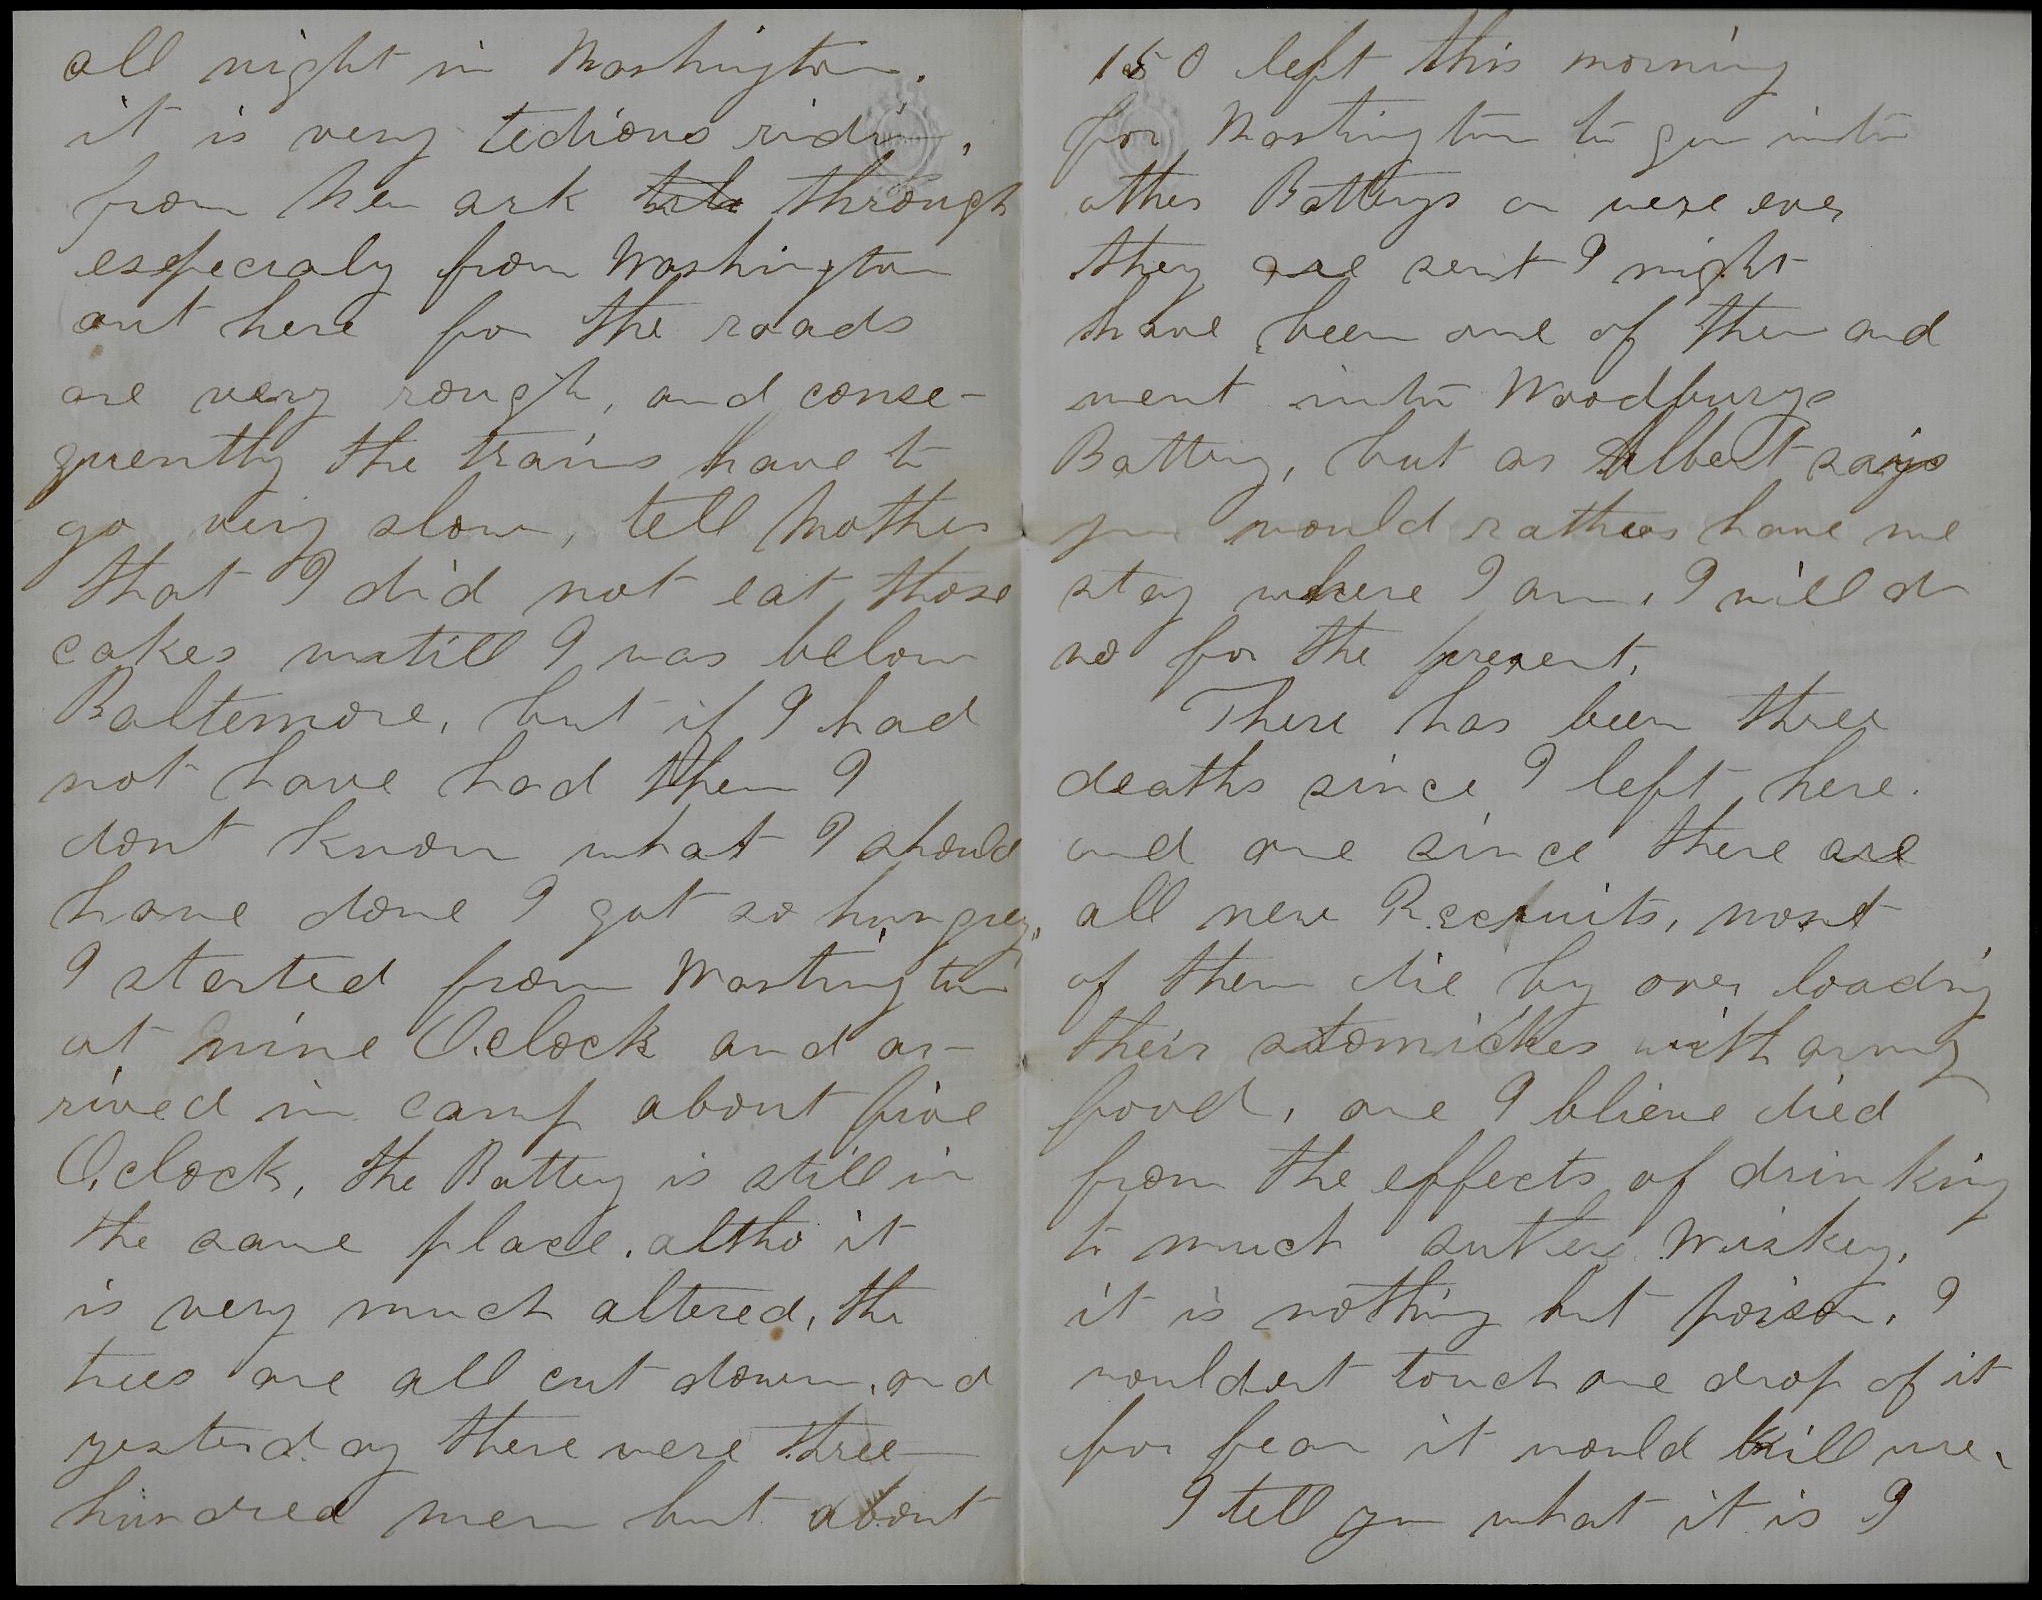 all night in Washington.
it is very tedious riding,
from New ark through
especialy from Washington
out here for the roads
are very rough, and conse-
quently the trains have to
go very slow, tell Mother
that I did not eat those
cakes untill I was below
Baltemore, but if I had
not have had them I
dont know what I should
have done I got so hungrey,
I started from Washington
at nine O,clock and ar-
rived in camp about five
O,clock, the Battery is still in
the same place, altho it
is very much altered, the
trees are all cut down, and
yesterday there were three
hundred men but about
150 left this morning
for Washington to go into
other Batterys or were ever
they are sent I might
have been one of them and
went into Woodburys
Battery, but as Albert says
you would rather have me
stay where I am, I will do
so for the present.
There has been three
deaths since I left here.
and one since there are
all new Recruits, most
of them die by over loading
their stomickes with army
food, one I blieve died
from the effects of drinking
to much sutlers Wiskey,
it is nothing but poison, I
wouldent touch one drop of it
for fear it would kill me,
I tell you what it is I